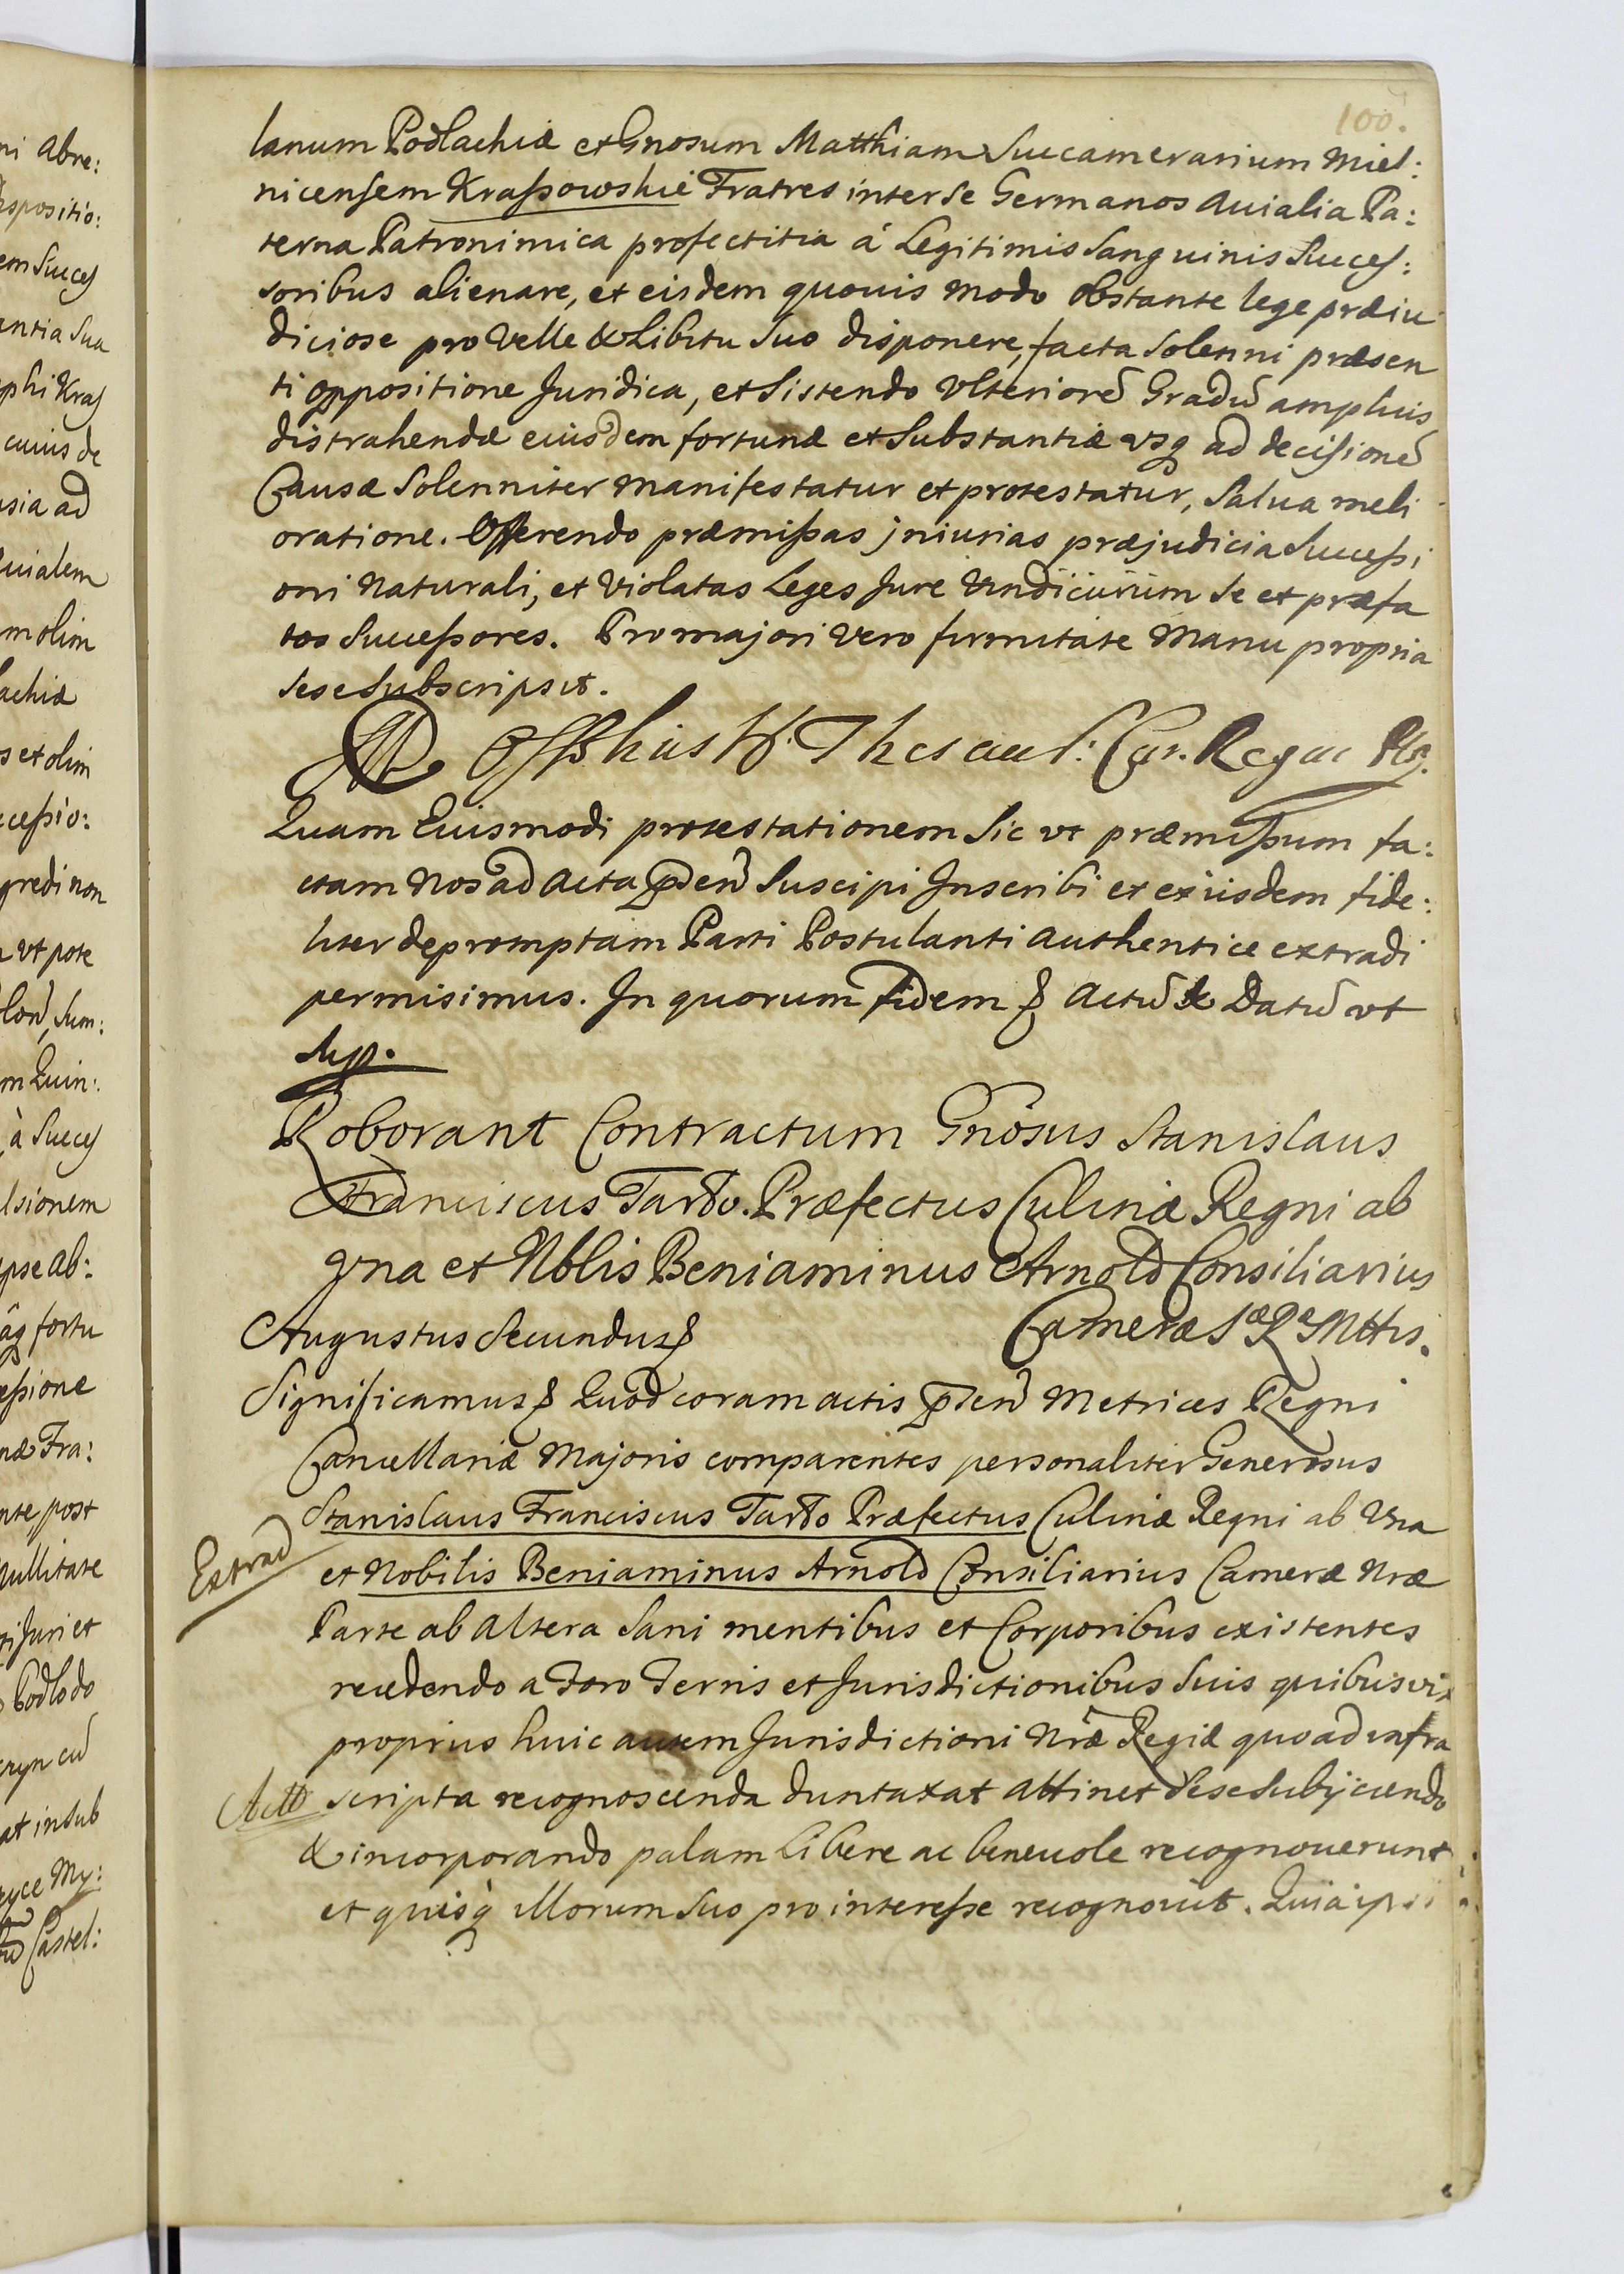 100.
lanum Podlachiæ et Gnosum Matthiam Succamerarium Miel:
nicensem Kraßowskie Fratres inter se Germanos Auialia Pa:
terna Patronimica profectitia á Legitimis Sanguinis Succes:
soribus alienare, et eisdem quouis modo obstante lege præiu
diciose pro Velle & Libitu Suo disponere, facta Solenni præsen
ti oppositione Juridica, et Sistendo Vlteriorē Gradū amplius
distrahendæ eiusdem fortunæ et Substantiæ vsq ad decisionē
Causæ Solenniter manifestatur et protestatur, Salua meli
oratione. Offerendo præmißas jniurias præjudicia Succeßi
oni Naturali, et Violatas Leges Jure Vindicurum se et præfa
tos Succeßores. Pro majori vero firmitate Manu propria
sese Subscripsit.
Thesaur: Cur. Regae
Quam Euismodi protestationem Sic vt præmißum fa:
ctam Nos ad Acta Suscipi Inscribi et ex iisdem fide:
liter depromptam Parti Postulanti authentice extradi
permisimus. In quorum fidem & Actū & Datū vt
sup.
Roborant Contractum Gnosus Stanislaus
Franciscus Tarło. Præfectus Culinæ Regni ab
vna et Nblis Beniaminus Arnold Consiliarius
Cameræ Sæ Rę Mttis.
Augustus Secundus &
Significamus & Quod coram actis Metrices Regni
Cancellariæ Majoris comparentes personaliter Generosus
Stanislaus Franciscus Tarło Præfectus Culinæ Regni ab Vna
Extrad
et Nobilis Beniaminus Arnold Consiliarius Cameræ Nræ
Parte ab Altera Sani mentibus et Corporibus existentes
recedendo a Foro Terris et Jurisdictionibus Suis quibusvis
proprius huic autem Jurisdictioni Nræ Regiæ quoad infra
scripta recognoscenda duntaxat attinet sese subijciendo
& incorporando palam Libere ac beneuole recognouerunt
et quisq illorum Suo pro intereße recognouit. Quia ipsi
ni Abre:
ispositio:
em Succes
antia Sua
phi Kras
cuius de
sia ad
uialem
m olim
achiæ
s et olim
cceßio:
gredi non
vt pote
lon, Sum:
m Quin:
à Succes
lsionem
pse ab:
âq fortu
eßione
næ Fra:
nte post
Nullitate
ri Juri et
Podlodo
cryn cū
at in Sub
yce My:
Castel: